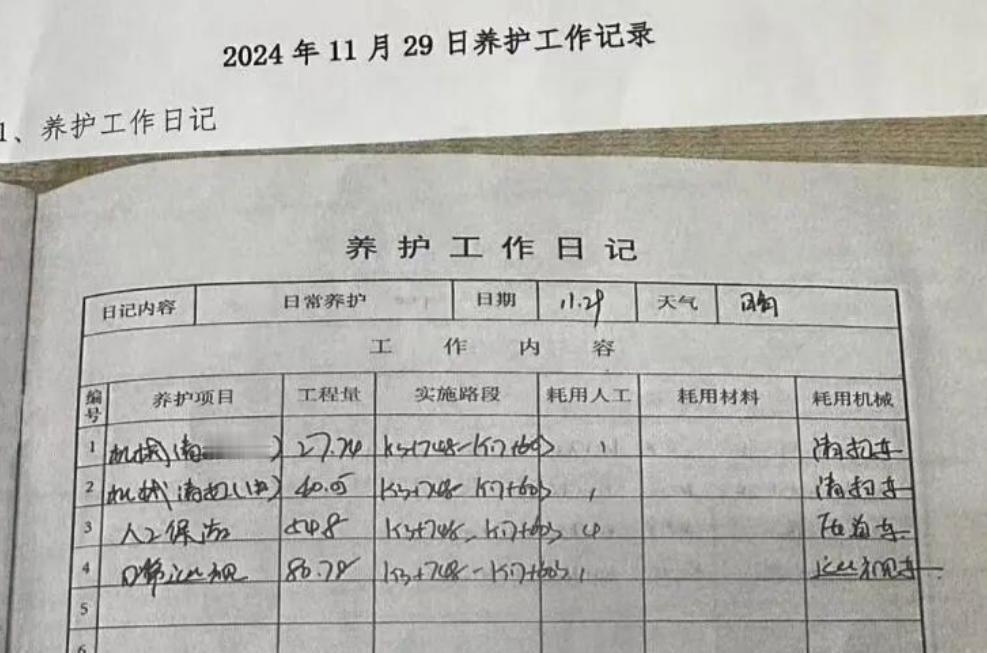 2024 年 11 月 29 日养护工作记录
1、养护工作日记
养护工作日记
日记内容 日常养护 日期 11.29 天气 晴
工作内容
编号 养护项目 工程量 实施路段 耗用人工 耗用材料 耗用机械
1 机械(清 ) 27.74 K3+748-K17+603 1 清扫车
2 机械清扫 40.05 K3+748-K17+603 1 清扫车
3 人工保洁 548 K3+748-K17+603 4
4 日常巡视 80.78 K3+748-K17+603 1 巡视车
5
6